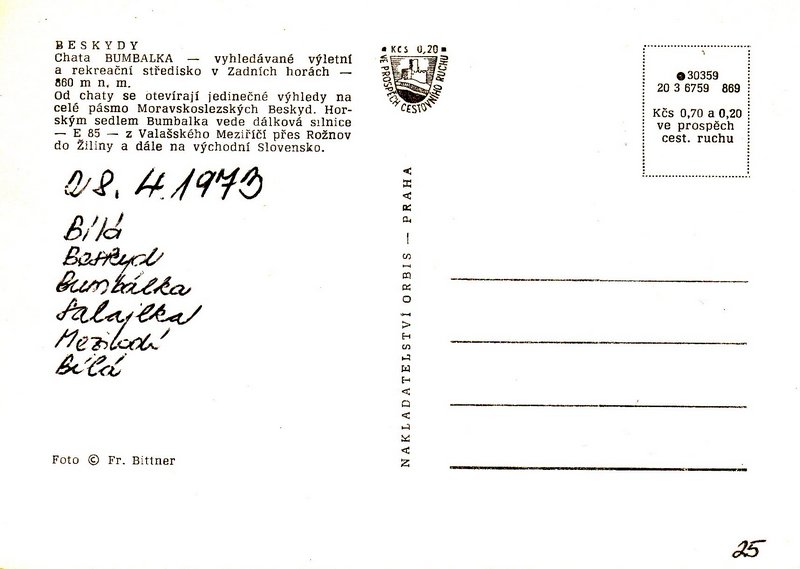 BESKYDY
Chata BUMBALKA — vyhledávané výletní
a rekreační středisko v Zadních horách —
860 m n. m.
Od chaty se otevírají jedinečné výhledy na
celé pásmo Moravskoslezských Beskyd. Hor-
ským sedlem Bumbalka vede dálková silnice
— E 85 — z Valašského Meziříčí přes Rožnov
do Žiliny a dále na východní Slovensko.
28. 4. 1973
Bílá
Beskyd
Bumbálka
Salajka
Bílá
Foto © Fr. Bittner
Kčs 0,20
VE PROSPĚCH CESTOVNÍHO RUCHU
NAKLADATELSTVÍ ORBIS — PRAHA
30359
20 3 6759 869
Kčs 0,70 a 0,20
ve prospěch
cest. ruchu
25